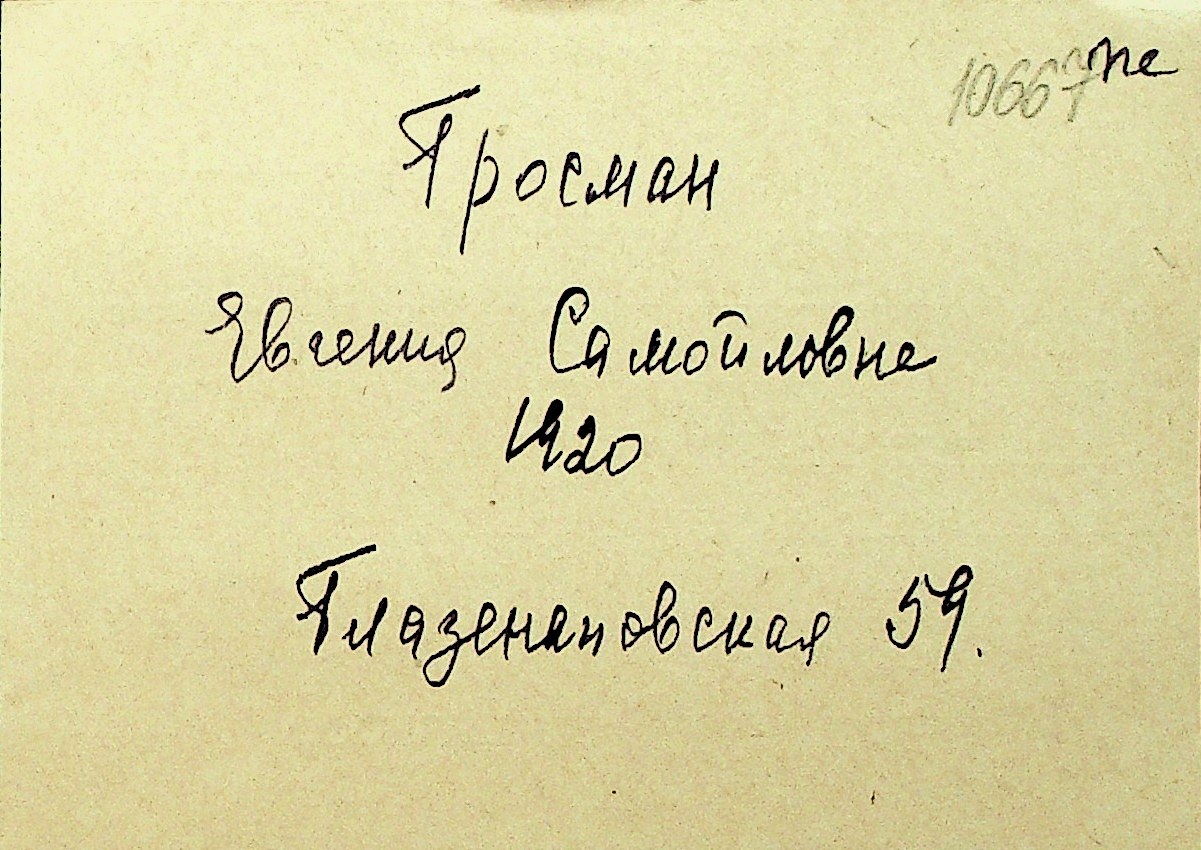 10667 пе
Гросман
Евгения Самойловна
1920
Глазенаповская 59.